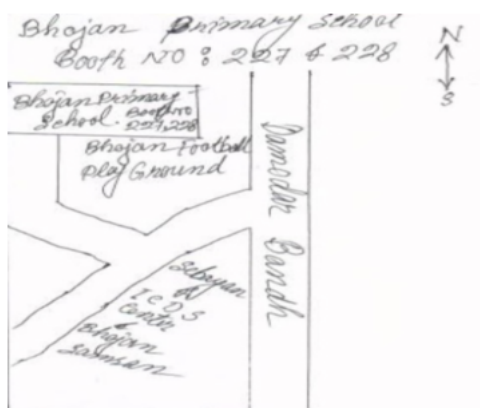 Bhojan Primary School
Booth NO : 227 & 228
N
S
Bhojan Primary
School. Booth no
227,228
Bhojan Football
Play Ground
Damodar Bandh
of
ICDS
Center
&
Bhojan